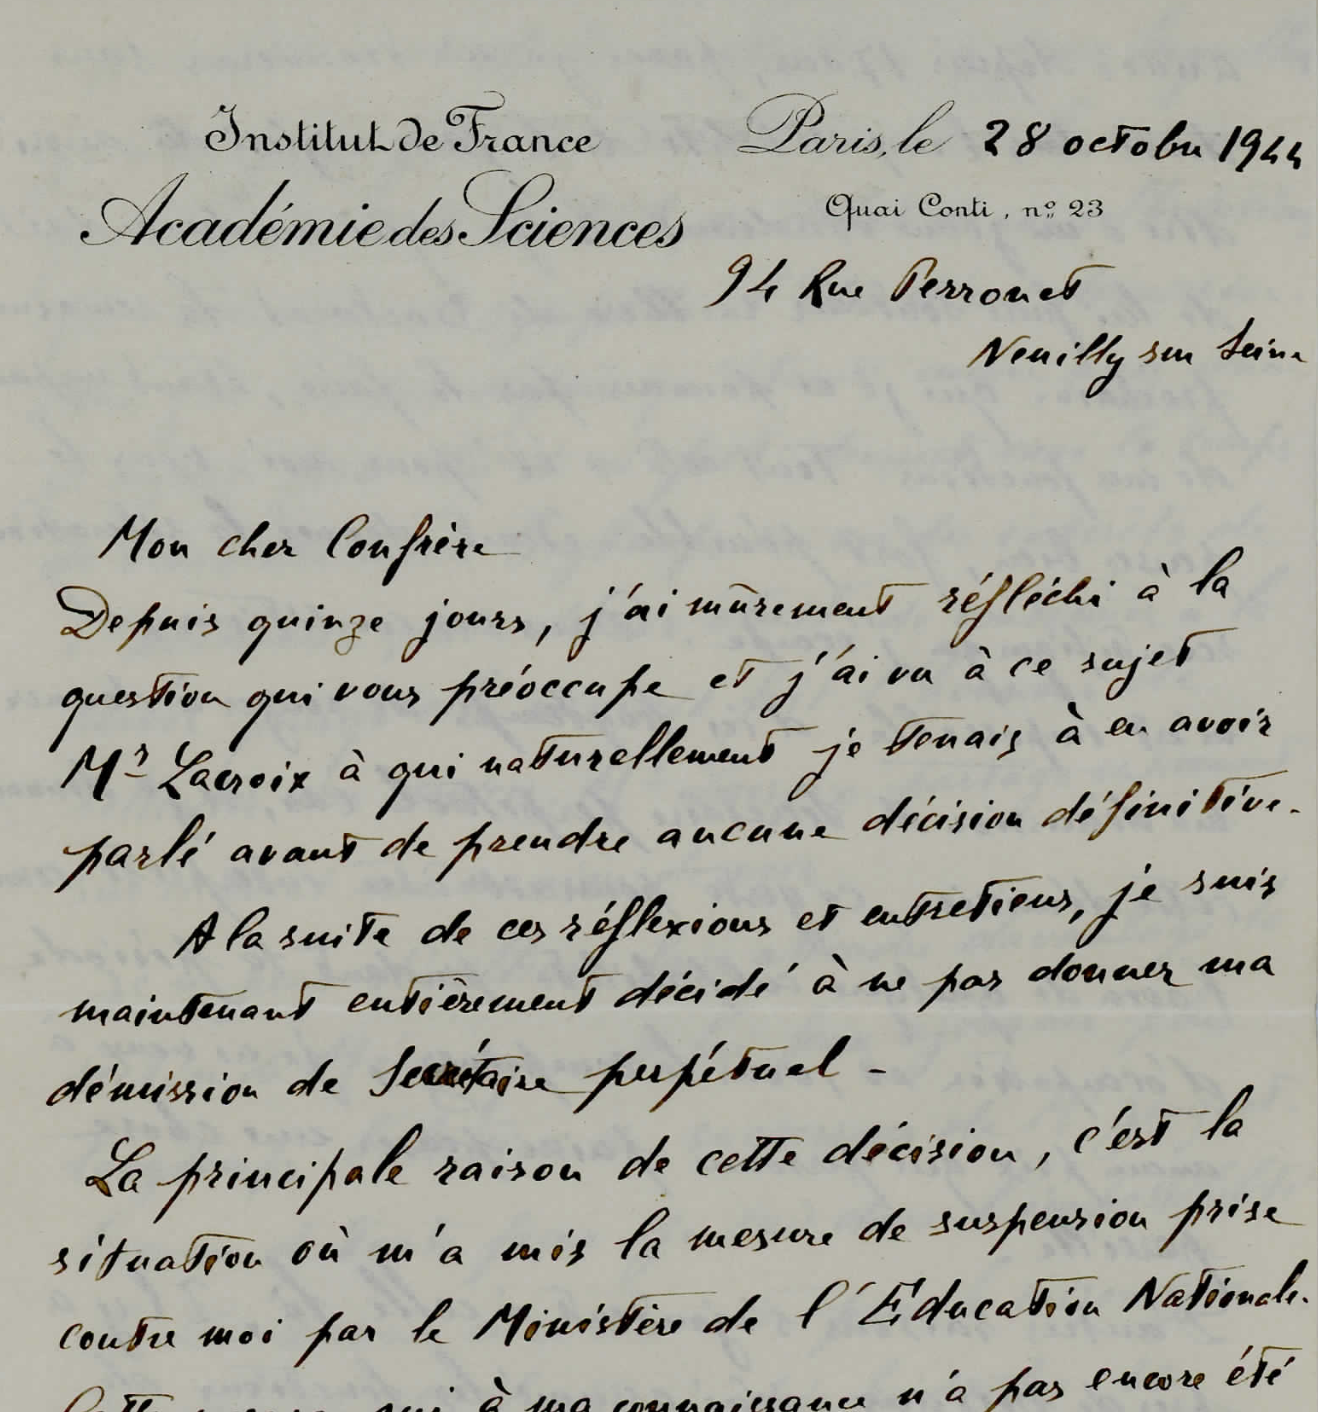 Institut de France
Académie des Sciences
Paris, le 28 octobre 1944
Quai Conti, nº 23
94 Rue Perronet
Neuilly sur Seine
Mon cher Confrère
Depuis quinze jours, j'ai mûrement réfléchi à la
question qui vous préoccupe et j'ai vu à ce sujet
Mr Lacroix à qui naturellement je tenais à en avoir
parlé avant de prendre aucune décision définitive.
A la suite de ces réflexions et entretiens, je suis
maintenant entièrement décidé à ne pas donner ma
démission de Secrétaire perpétuel -
La principale raison de cette décision, c'est la
situation où m'a mis la mesure de suspension prise
contre moi par le Ministère de l'Education Nationale.
Cette mesure qui à ma connaissance n'a pas encore été